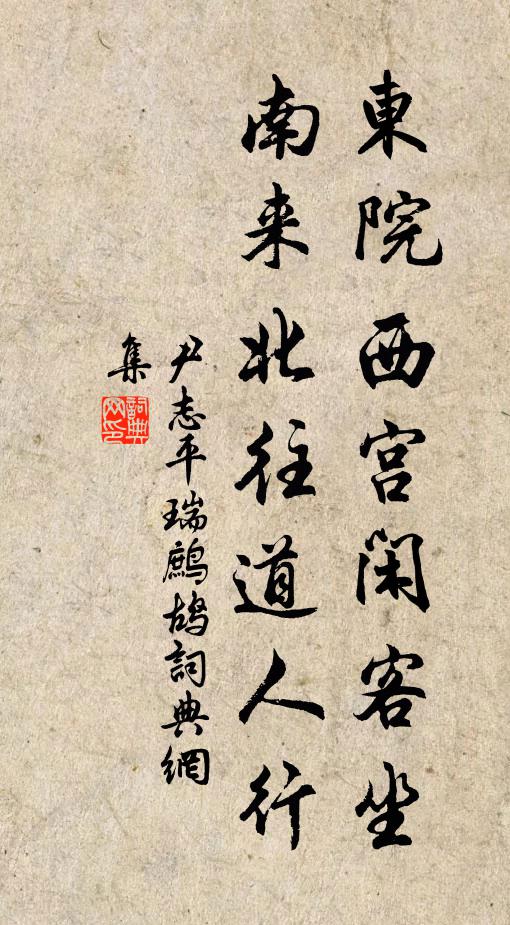 東院西宫闲客坐
南来北往道人行
尹志平瑞鷓鴣詞典網
集
詞典網印